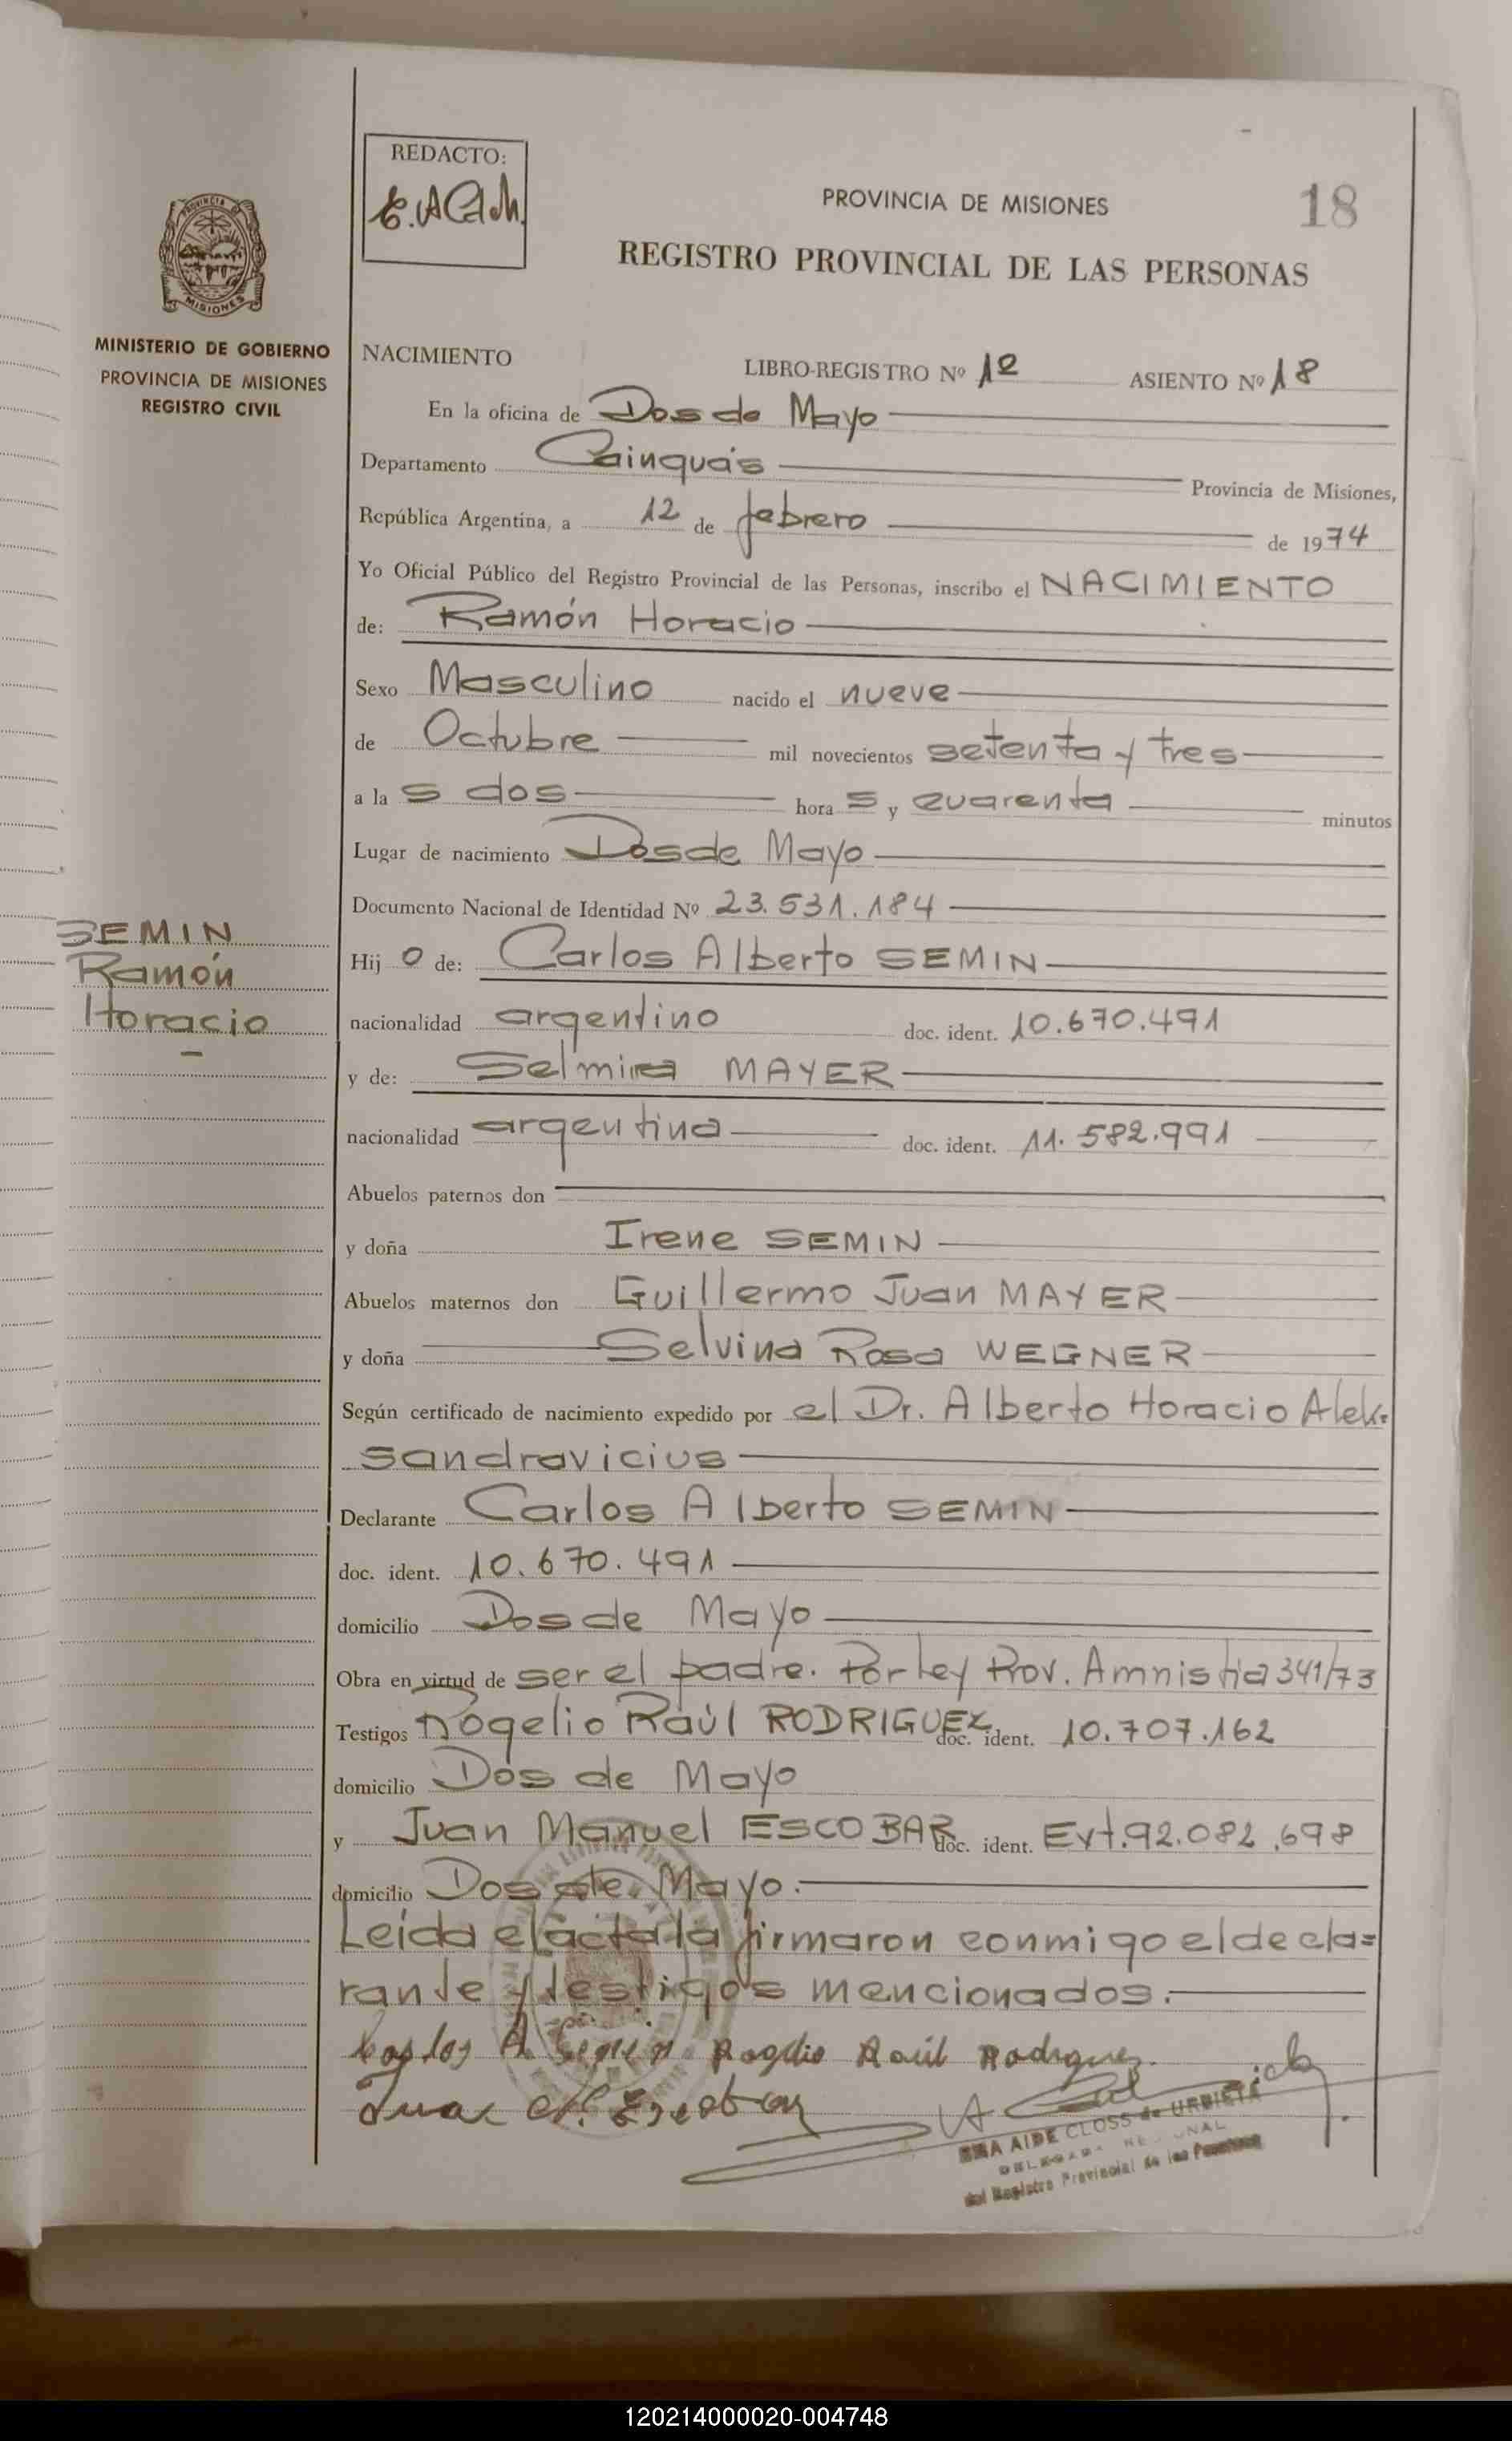 REDACTO:
PROVINCIA DE MISIONES
18
REGISTRO PROVINCIAL DE LAS PERSONAS
PROVINCIA DE
MISIONES
MINISTERIO DE GOBIERNO
PROVINCIA DE MISIONES
REGISTRO CIVIL
NACIMIENTO LIBRO-REGISTRO Nº 12 ASIENTO Nº 18
En la oficina de Dos de Mayo
Departamento Cainguás Provincia de Misiones,
República Argentina, a 12 de febrero de 1974
Yo Oficial Público del Registro Provincial de las Personas, inscribo el NACIMIENTO
de: Ramón Horacio
Sexo Masculino nacido el nueve
de Octubre mil novecientos setenta y tres
a las dos horas y cuarenta minutos
Lugar de nacimiento Dos de Mayo
Documento Nacional de Identidad Nº 23.531.184
SEMIN
Ramón
Horacio
Hijo de: Carlos Alberto SEMIN
nacionalidad argentino doc. ident. 10.670.491
y de: Selmira MAYER
nacionalidad argentina doc. ident. 11.582.991
Abuelos paternos don
y doña Irene SEMIN
Abuelos maternos don Guillermo Juan MAYER
y doña Selvina Rosa WEGNER
Según certificado de nacimiento expedido por el Dr. Alberto Horacio Alek=
sandravicius
Declarante Carlos Alberto SEMIN
doc. ident. 10.670.491
domicilio Dos de Mayo
Obra en virtud de ser el padre. Por Ley Prov. Amnistia 341/73
Testigos Rogelio Raúl RODRIGUEZ doc. ident. 10.707.162
domicilio Dos de Mayo
y Juan Manuel ESCOBAR doc. ident. Ext.92.082.698
domicilio Dos de Mayo.
Leída el acta la firmaron conmigo el decla=
rante y testigos mencionados.
Carlos A. Semin Rogelio Raúl Rodriguez
Juan M. Escobar
AIDE CLOSS de URBIETA
del Registro Provincial de las Personas
120214000020-004748